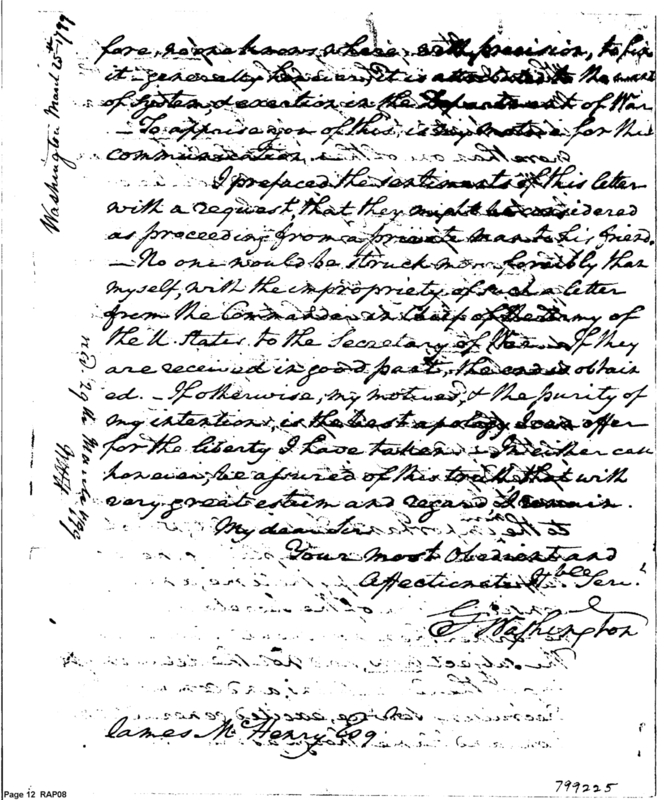 Washington March 25th 1799
fore, no one knows where, with precision, to fix
it – generally however, it is attributed to the want
of System, & exertion in the Department of War.
– To apprise you of this, is my motive for the
communication.
I prefaced the sentiments of this letter
with a request, that they might be considered
as proceeding from a private man to his friend.
– No one would be struck more forcibly than
myself, with the impropriety of such a letter
from the Commander in Chief of the Army of
the U. States to the Secretary of War. – If they
are received in good part, the end is obtain
ed. – If otherwise, my motives, & the purity of
my intentions, is the best apology I can offer
for the liberty I have taken. – In either case
however, be assured of this truth, that with
very great esteem and regard I remain.
My dear Sir
Your most Obedient and
Affectionate Hble Servt
G Washington
James McHenry Esq
recd 29th March 1799
Page 12 RAP08
799225